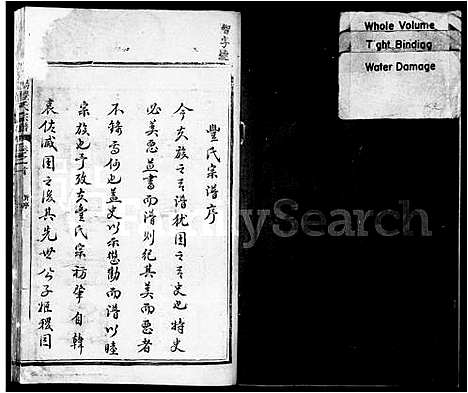 豐氏宗譜序
今夫族之有譜猶國之有史也特史
必美惡並書而譜則紀其美而惡者
不錄焉何也蓋史以示懲勸而譜以睦
宗族也予攷夫豐氏宗祊肇自韓
哀佐威國之後其先世公子恒稷
Whole Volume
Tight Binding
Water Damage
MySearch